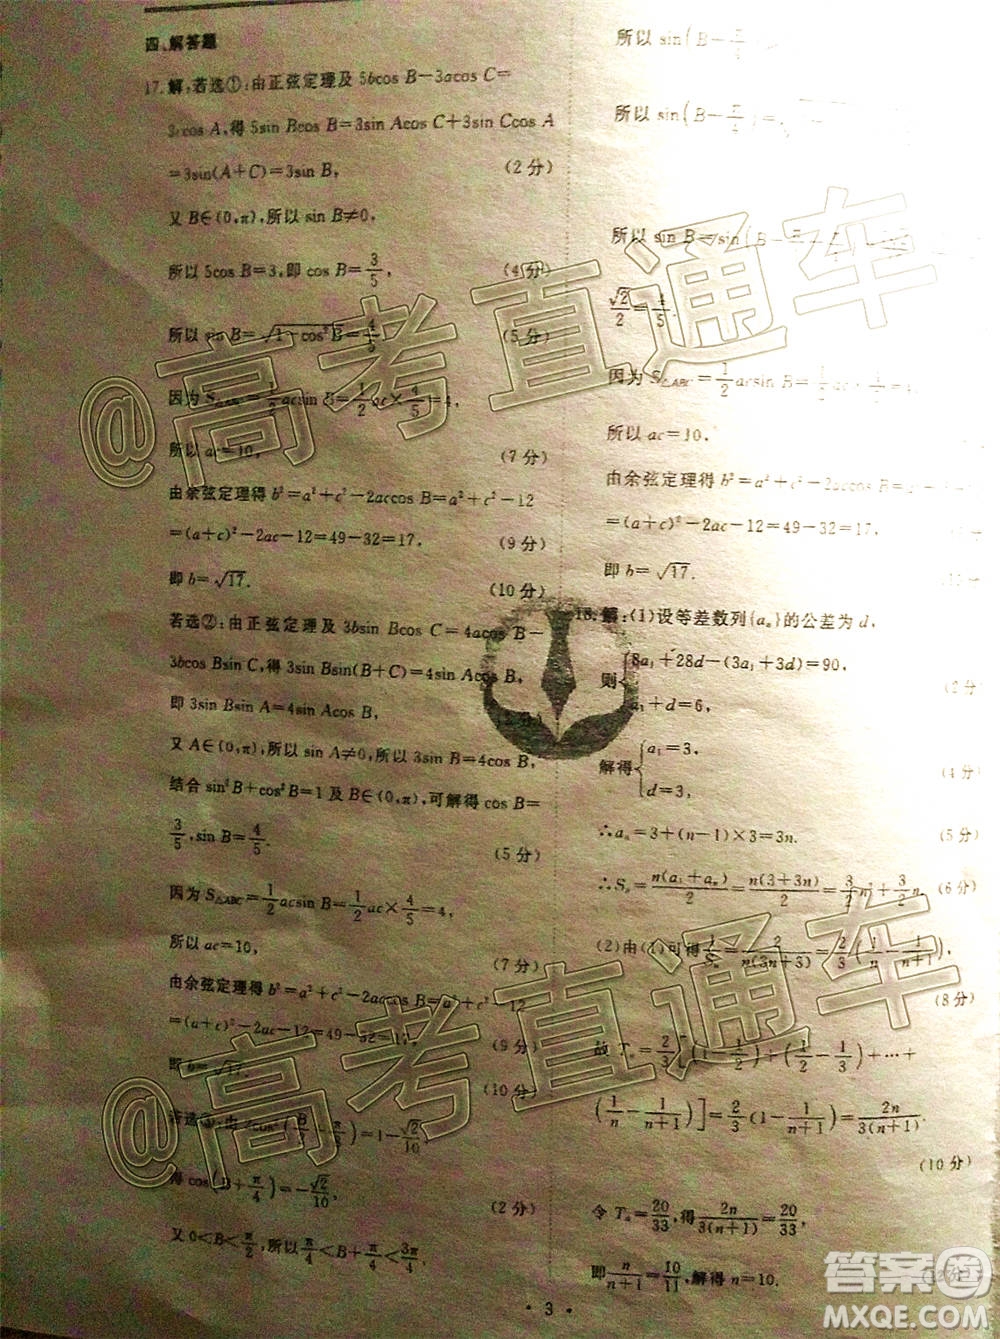 四、解答题
17. 解:若选①:由正弦定理及 5bcos B−3acos C=
3ccos A,得 5sin Bcos B=3sin Acos C+3sin Ccos A
=3sin(A+C)=3sin B, (2 分)
又 B∈(0,π),所以 sin B≠0,
所以 5cos B=3,即 cos B=3/5, (4 分)
所以 sin B=√(1−cos²B)=4/5, (5 分)
因为 S△ABC=1/2 acsin B=1/2 ac×4/5=4,
所以 ac=10, (7 分)
由余弦定理得 b²=a²+c²−2accos B=a²+c²−12
=(a+c)²−2ac−12=49−32=17. (9 分)
即 b=√17. (10 分)
若选②:由正弦定理及 3bsin Bcos C=4acos B−
3bcos Bsin C,得 3sin Bsin(B+C)=4sin Acos B,
即 3sin Bsin A=4sin Acos B,
又 A∈(0,π),所以 sin A≠0,所以 3sin B=4cos B,
结合 sin²B+cos²B=1 及 B∈(0,π),可解得 cos B=
3/5,sin B=4/5. (5 分)
因为 S△ABC=1/2 acsin B=1/2 ac×4/5=4,
所以 ac=10, (7 分)
由余弦定理得 b²=a²+c²−2accos B=a²+c²−12
=(a+c)²−2ac−12=49−32=17, (9 分)
即 b=√17. (10 分)
若选③:由 2cos²(B/2−π/4)=1−√2/10
得 cos(B+π/4)=−√2/10, (2 分)
又 0<B<π/2,所以 π/4<B+π/4<3π/4
所以 sin(B−π/
所以 sin(B−π/4)=
所以 sin B=sin(B−π/
√2/2=4/5.
因为 S△ABC=1/2 acsin B=1/2 ac·4/5=4,
所以 ac=10.
由余弦定理得 b²=a²+c²−2accos B=a²+c²−12
=(a+c)²−2ac−12=49−32=17,
即 b=√17.
18. 解:(1)设等差数列{aₙ}的公差为 d,
则{8a₁+28d−(3a₁+3d)=90,
a₁+d=6, (2 分)
解得{a₁=3,
d=3, (4 分)
∴aₙ=3+(n−1)×3=3n. (5 分)
∴Sₙ=n(a₁+aₙ)/2=n(3+3n)/2=3/2 n²+3/2 n (6 分)
(2)由(1)可得 1/Sₙ=2/n(3n+3)=2/3(1/n−1/(n+1)), (8 分)
故 Tₙ=2/3[(1−1/2)+(1/2−1/3)+⋯+
(1/n−1/(n+1))]=2/3(1−1/(n+1))=2n/3(n+1). (10 分)
令 Tₙ=20/33,得 2n/3(n+1)=20/33,
即 n/(n+1)=10/11,解得 n=10.
· 3 ·
@高考直通车
@高考直通车
答案圈
MXQE.COM